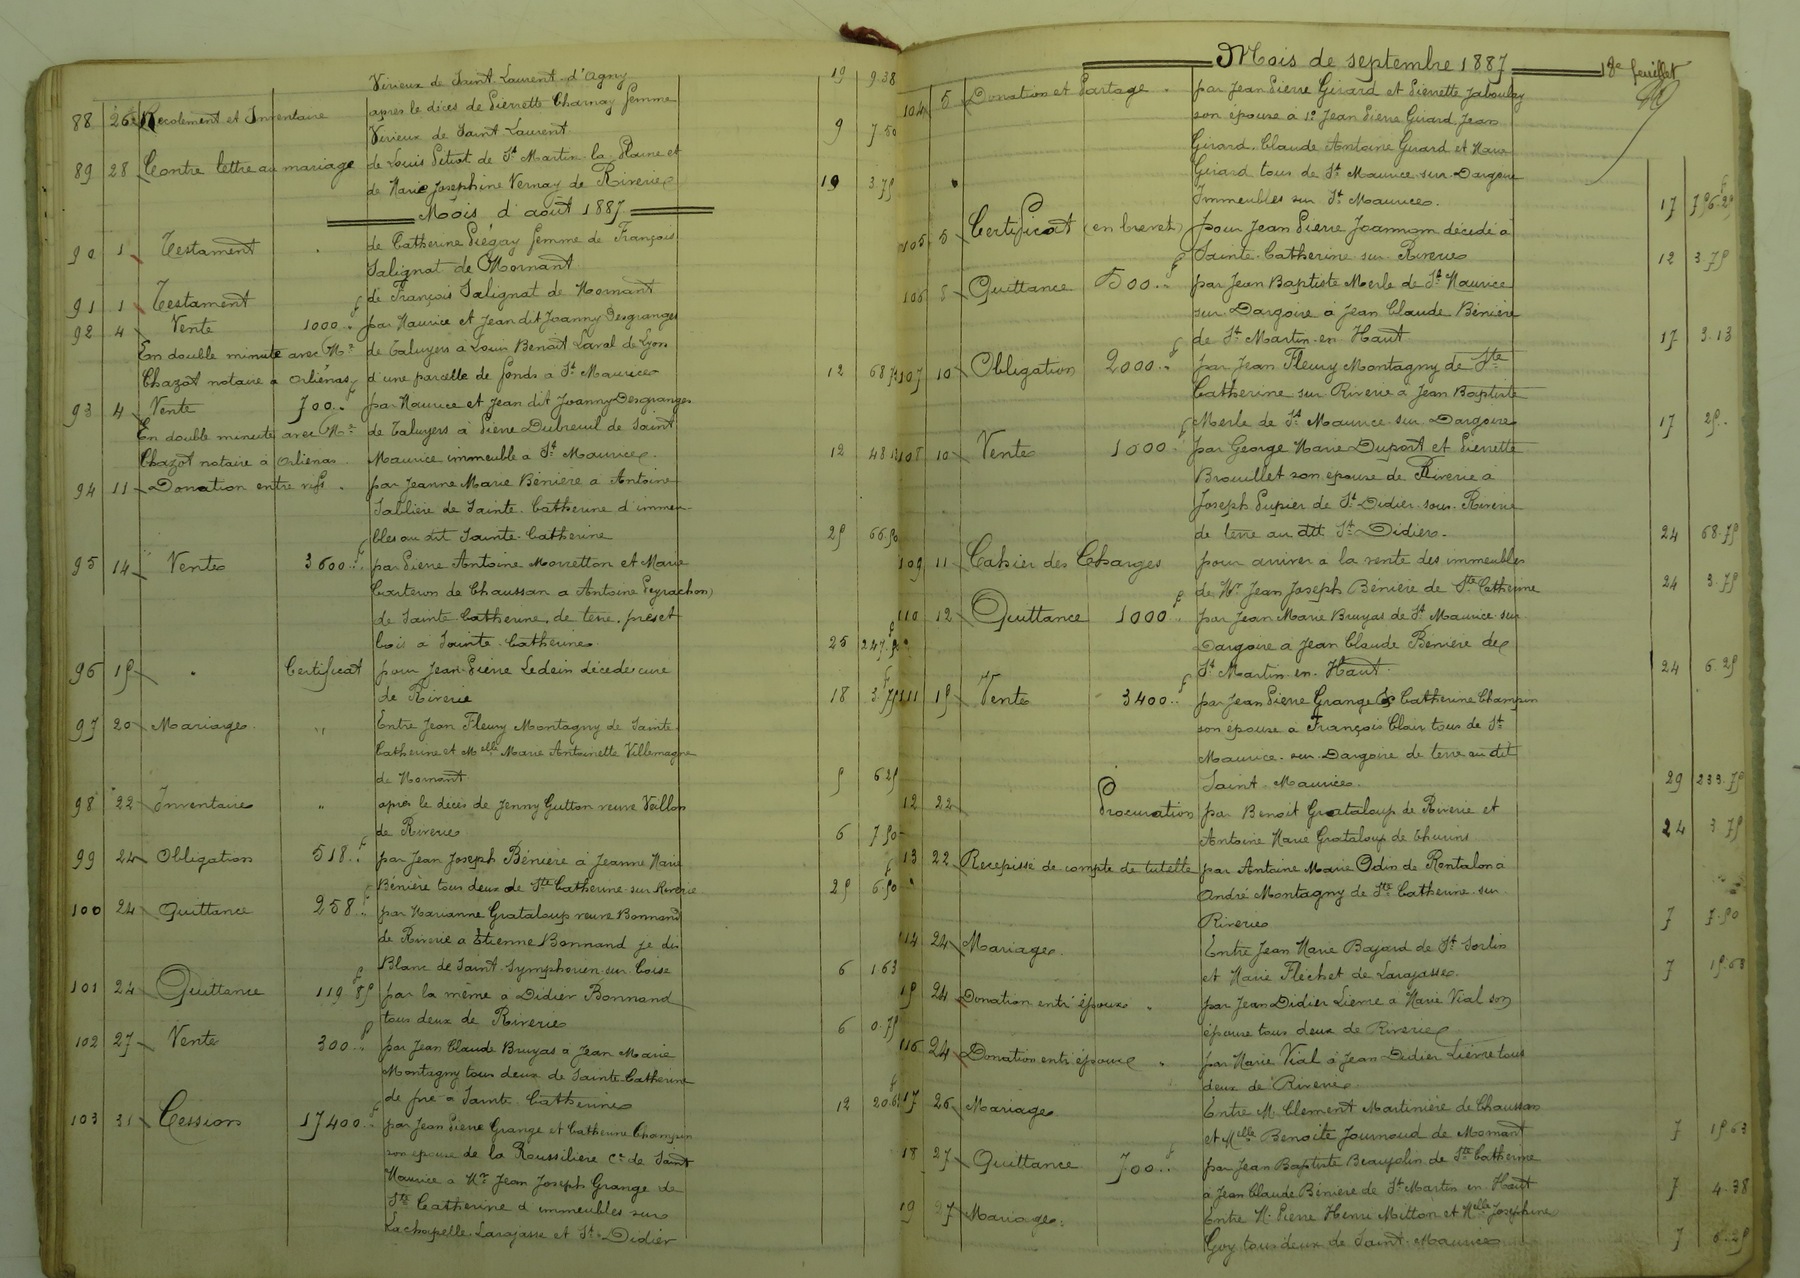 Virieux de Saint Laurent d'Agny 19 9.38
88 26 Recolement et Inventaire après le décès de Pierrette Charnay femme
Virieux de Saint Laurent 9 7.50
89 28 Contre lettre au mariage de Louis Pitiot de St Martin la Plaine et
de Marie Josephine Vernay de Riverie 19 3.75
Mois d'août 1887
90 1 Testament de Catherine Piégay femme de François
Salignat de Mornant
91 1 Testament de François Salignat de Mornant
92 4 Vente 1000 f par Maurice et Jean dit Joanny Desgranges
En double minute avec Me de Taluyers à Louis Benoit Laval de Lyon
Chazot notaire à Orliénas d'une parcelle de fonds à St Maurice 12 68.75
93 4 Vente 700 f par Maurice et Jean dit Joanny Desgranges
En double minute avec Me de Taluyers à Pierre Dubreuil de Saint
Chazot notaire à Orliénas Maurice immeuble à St Maurice. 12 48.13
94 11 Donation entre vifs par Jeanne Marie Bénière à Antoine
Tablière de Sainte Catherine d'immeu-
bles au dit Sainte Catherine 25 66.50
95 14 Vente 3600 f par Pierre Antoine Morretton et Marie
Carteron de Chaussan à Antoine Peyrachon
de Sainte Catherine, de terre, pré et
bois à Sainte Catherine 25 247.50
96 15 Certificat pour Jean Pierre Ledein décédé curé
de Riverie 18 3.75
97 20 Mariage " Entre Jean Fleury Montagny de Sainte
Catherine et Melle Marie Antoinette Villemagne
de Mornant 5 6.25
98 22 Inventaire " après le décès de Jenny Gutton veuve Veillon
de Riverie 6 7.50
99 24 Obligation 518 f par Jean Joseph Bénière à Jeanne Marie
Bénière tous deux de Ste Catherine sur Riverie 25 6.50
100 24 Quittance 258 f par Marianne Grataloup veuve Bonnand
de Riverie à Etienne Bonnand je dis
Blanc de Saint Symphorien sur Coise 6 1.63
101 24 Quittance 119 f 85 par la même à Didier Bonnand
tous deux de Riverie 6 0.75
102 27 Vente 300 f par Jean Claude Bruyas à Jean Marie
Montagny tous deux de Sainte Catherine
de pré à Sainte Catherine 12 20.63
103 31 Cession 17400 f par Jean Pierre Grange et Catherine Champin
son épouse de la Roussilière Ce de Saint
Maurice à Mr Jean Joseph Grange de
Ste Catherine d'immeubles sur
Lachapelle, Larajasse et St Didier
Mois de septembre 1887 18e feuillet
104 5 Donation et Partage par Jean Pierre Girard et Pierrette Jaboulay
son épouse à 1o Jean Pierre Girard, Jean
Girard, Claude Antoine Girard et Marie
Girard tous de St Maurice sur Dargoire
Immeubles sur St Maurice 17 796.25
105 5 Certificat (en brevet) pour Jean Pierre Joannon décédé à
Sainte Catherine sur Riverie 12 3.75
106 8 Quittance 500 f par Jean Baptiste Merle de St Maurice
sur Dargoire à Jean Claude Bénière
de St Martin en Haut 17 3.13
107 10 Obligation 2000 f par Jean Fleury Montagny de Ste
Catherine sur Riverie à Jean Baptiste
Merle de St Maurice sur Dargoire 17 25
108 10 Vente 1000 f par George Marie Duport et Pierrette
Brouillet son épouse de Riverie à
Joseph Pupier de St Didier sous Riverie
de terre au dit St Didier. 24 68.75
109 11 Cahier des Charges pour arriver à la vente des immeubles
de Mr Jean Joseph Bénière de Ste Catherine 24 3.75
110 12 Quittance 1000 f par Jean Marie Bruyas de St Maurice sur
Dargoire à Jean Claude Bénière de
St Martin en Haut. 24 6.25
111 15 Vente 3400 f par Jean Pierre Grange & Catherine Champin
son épouse à François Clair tous de St
Maurice sur Dargoire de terre au dit
Saint Maurice. 29 233.75
12 22 Procuration par Benoit Grataloup de Riverie et
Antoine Marie Grataloup de Thurins 24 3.75
13 22 Recepissé de compte de tutelle par Antoine Marie Odin de Rontalon à
André Montagny de Ste Catherine sur
Riverie 7 7.50
114 24 Mariage Entre Jean Marie Bajard de St Sorlin
et Marie Flechet de Larajasse. 7 15.63
15 24 Donation entr'époux " par Jean Didier Lièvre à Marie Vial son
épouse tous deux de Riverie
116 24 Donation entr'époux " par Marie Vial à Jean Didier Lièvre tous
deux de Riverie
17 26 Mariage Entre M. Clement Martinière de Chaussan
et Melle Benoite Journoud de Mornant 7 15.63
18 27 Quittance 700 f par Jean Baptiste Beaujolin de Ste Catherine
à Jean Claude Bénière de St Martin en Haut 7 4.38
19 27 Mariage Entre M. Pierre Henri Mitton et Melle Josephine
Guy tous deux de Saint Maurice 7 6.25